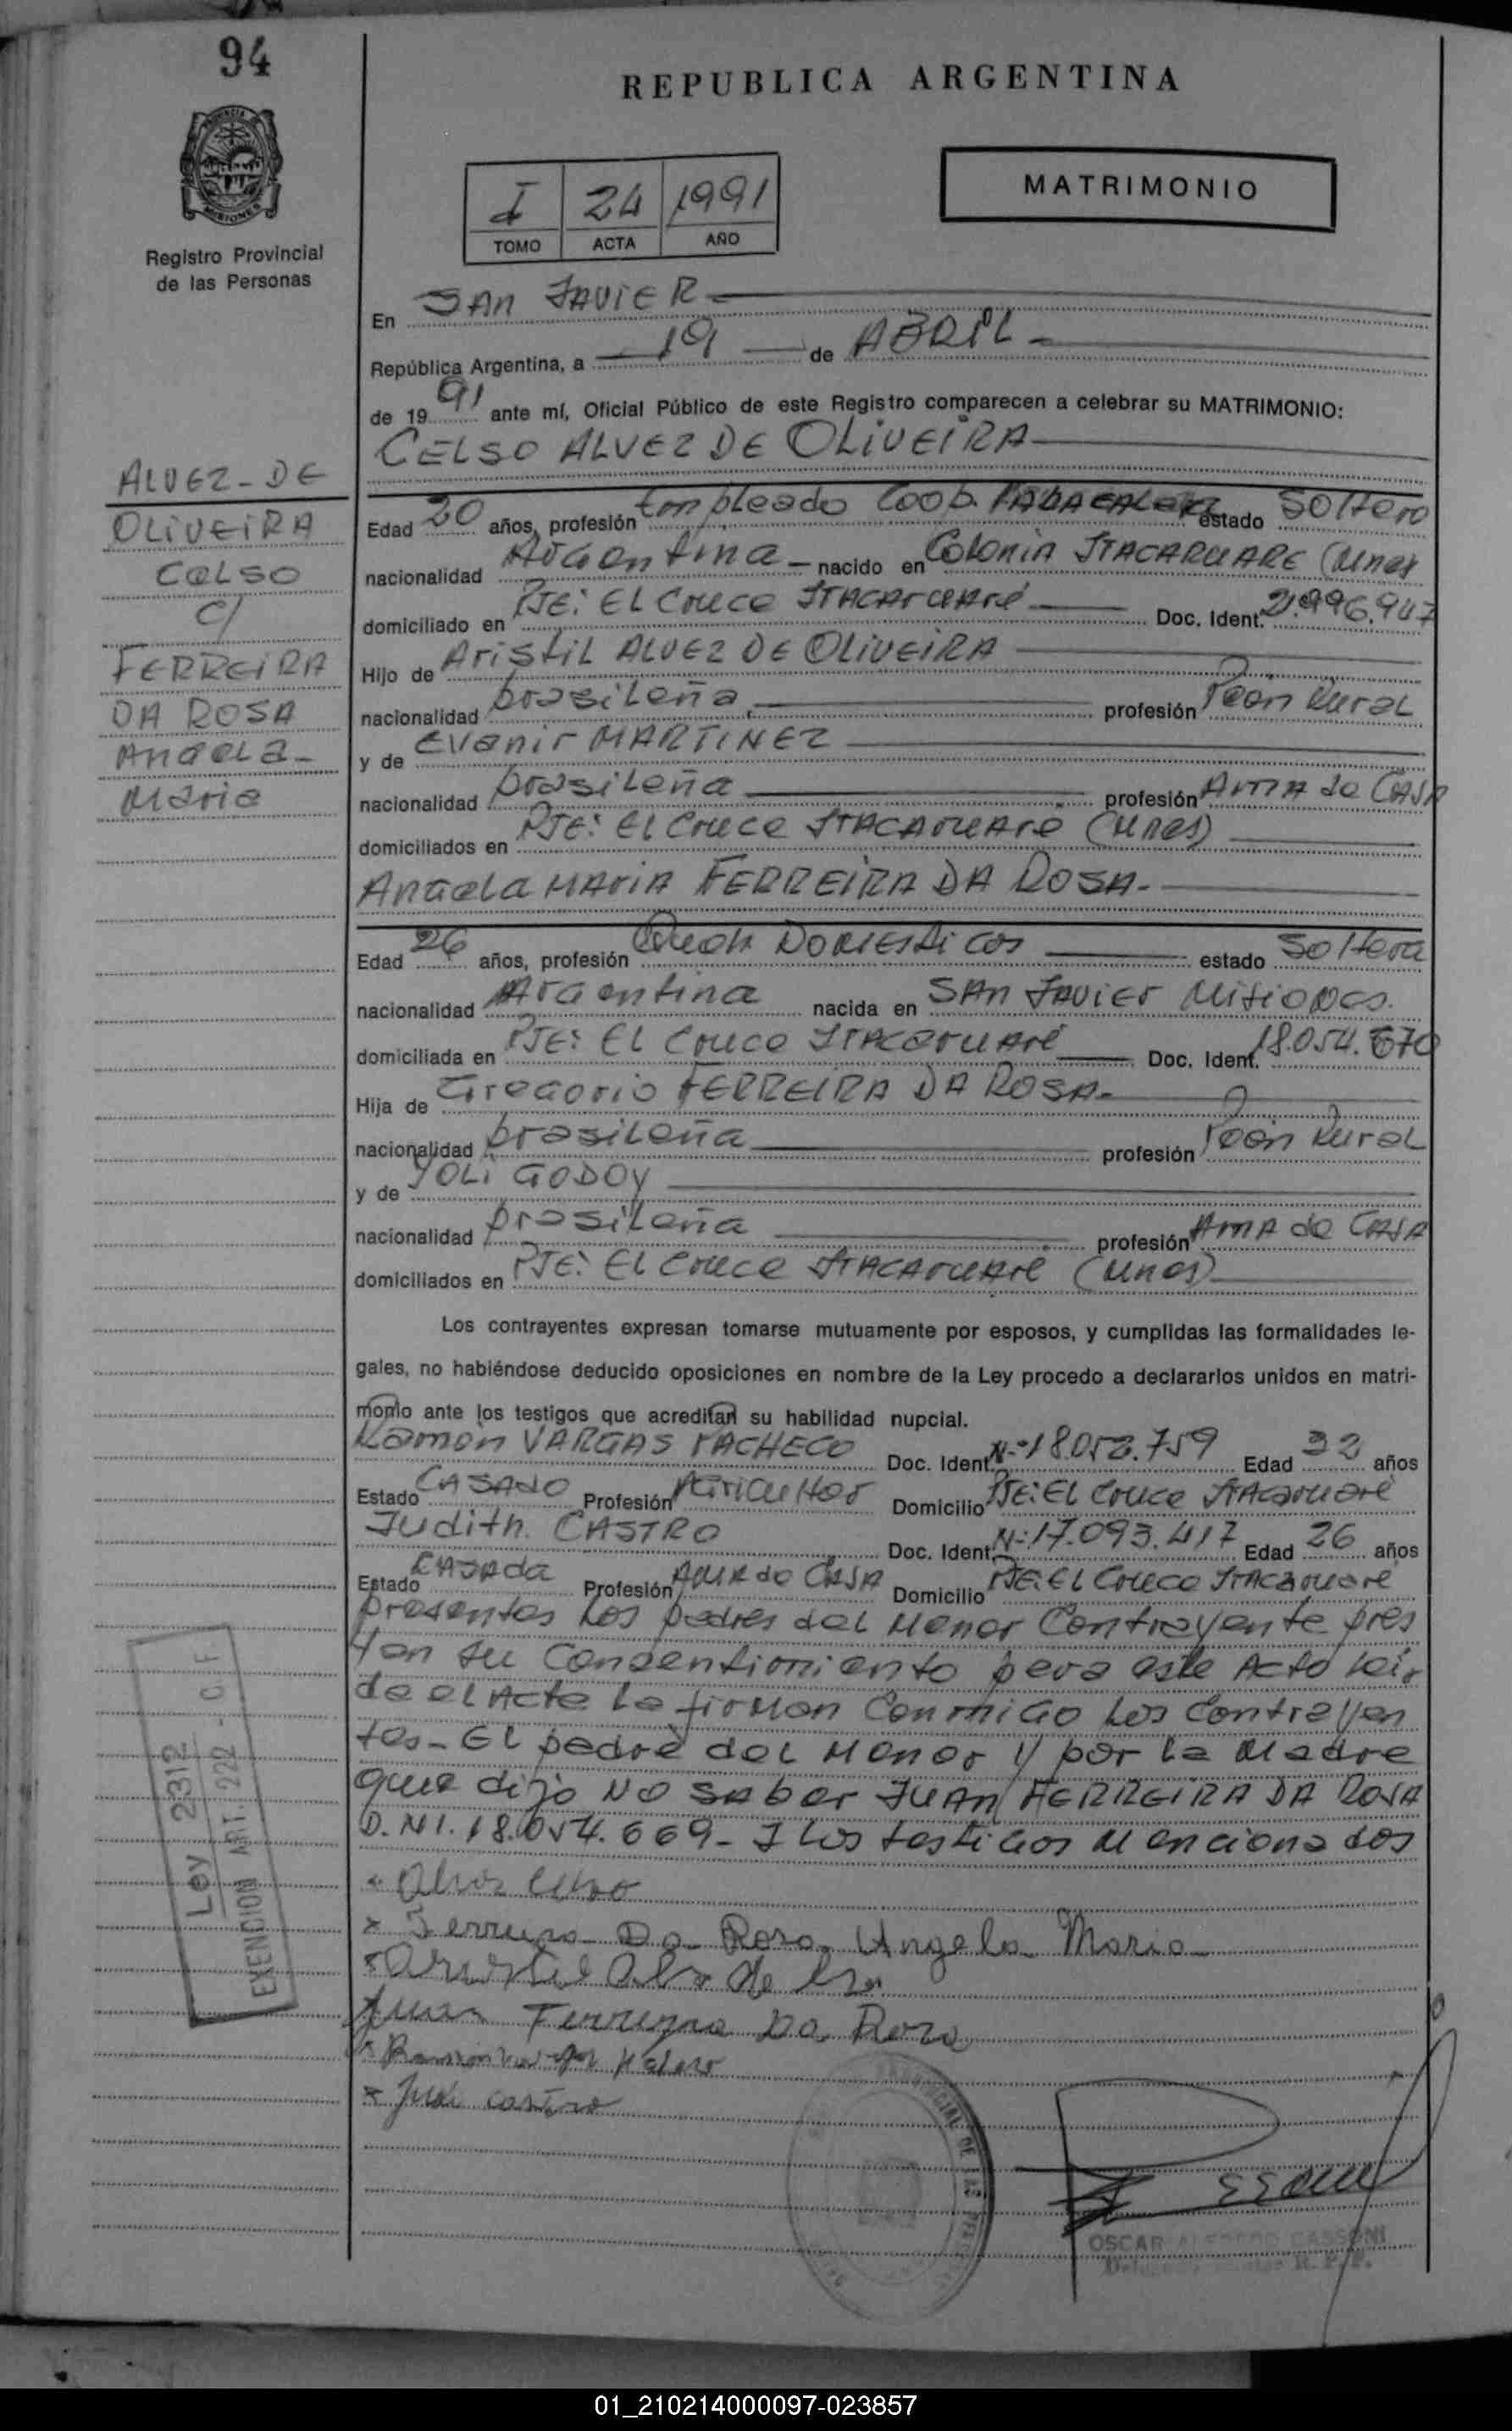 94
REPUBLICA ARGENTINA
MATRIMONIO
I 24 1991
TOMO ACTA AÑO
Registro Provincial
de las Personas
En SAN JAVIER
República Argentina, a 19 de ABRIL
de 1991 ante mí, Oficial Público de este Registro comparecen a celebrar su MATRIMONIO:
CELSO ALVEZ DE OLIVEIRA
ALVEZ - DE
OLIVEIRA
CELSO
C/
FERREIRA
DA ROSA
Angela -
Maria
Edad 20 años, profesión Empleado Coop. estado Soltero
nacionalidad Argentina - nacido en Colonia ITACARUARE (Mnes)
domiciliado en PJE: El Cruce ITACAruAré Doc. Ident. 21.996.947
Hijo de Aristil ALVEZ DE OLIVEIRA
nacionalidad brasileña profesión Peón Rural
y de Evanir MARTINEZ
nacionalidad brasileña profesión Ama de CASA
domiciliados en PJE: El Cruce ITACAruAré (Mnes)
Angela Maria FERREIRA DA ROSA -
Edad 26 años, profesión Queh Domesticos estado Soltera
nacionalidad Argentina nacida en SAn Javier Misiones
domiciliada en PJE: El Cruce ITACAruAré Doc. Ident. 18.054.670
Hija de Gregorio FERREIRA DA ROSA -
nacionalidad brasileña profesión Peón Rural
y de YOLI GODOY
nacionalidad brasileña profesión AmA de CASA
domiciliados en PJE: El Cruce ITACAruAré (Mnes)
Los contrayentes expresan tomarse mutuamente por esposos, y cumplidas las formalidades le-
gales, no habiéndose deducido oposiciones en nombre de la Ley procedo a declararlos unidos en matri-
monio ante los testigos que acreditan su habilidad nupcial.
Ramón VARGAS PACHECO Doc. Ident. Nº 18.052.759 Edad 32 años
Estado CASADO Profesión Agricultor Domicilio PJE: El Cruce ITAcaruaré
Judith CASTRO Doc. Ident. N: 17.093.417 Edad 26 años
Estado CASAda Profesión AMA de CASA Domicilio PJE: El Cruce ITAcaruaré
presentes Los padres del Menor Contrayente pres
tan su Consentimiento para este Acto leí-
da el Acta la firman Conmigo Los Contrayen
tes - El padre del Menor y por la Madre
que dijo NO saber JUAN FERREIRA DA ROSA
D.N.I. 18.054.669 - I los testigos Mencionados
x Ferreira Da Rosa Angela Maria
Juan Ferreyra Da Roza
x Judi castro
Ley 2312
EXENCION ART. 222 - C.F.
OSCAR ALFREDO CASSONI
R. P. P.
01_210214000097-023857